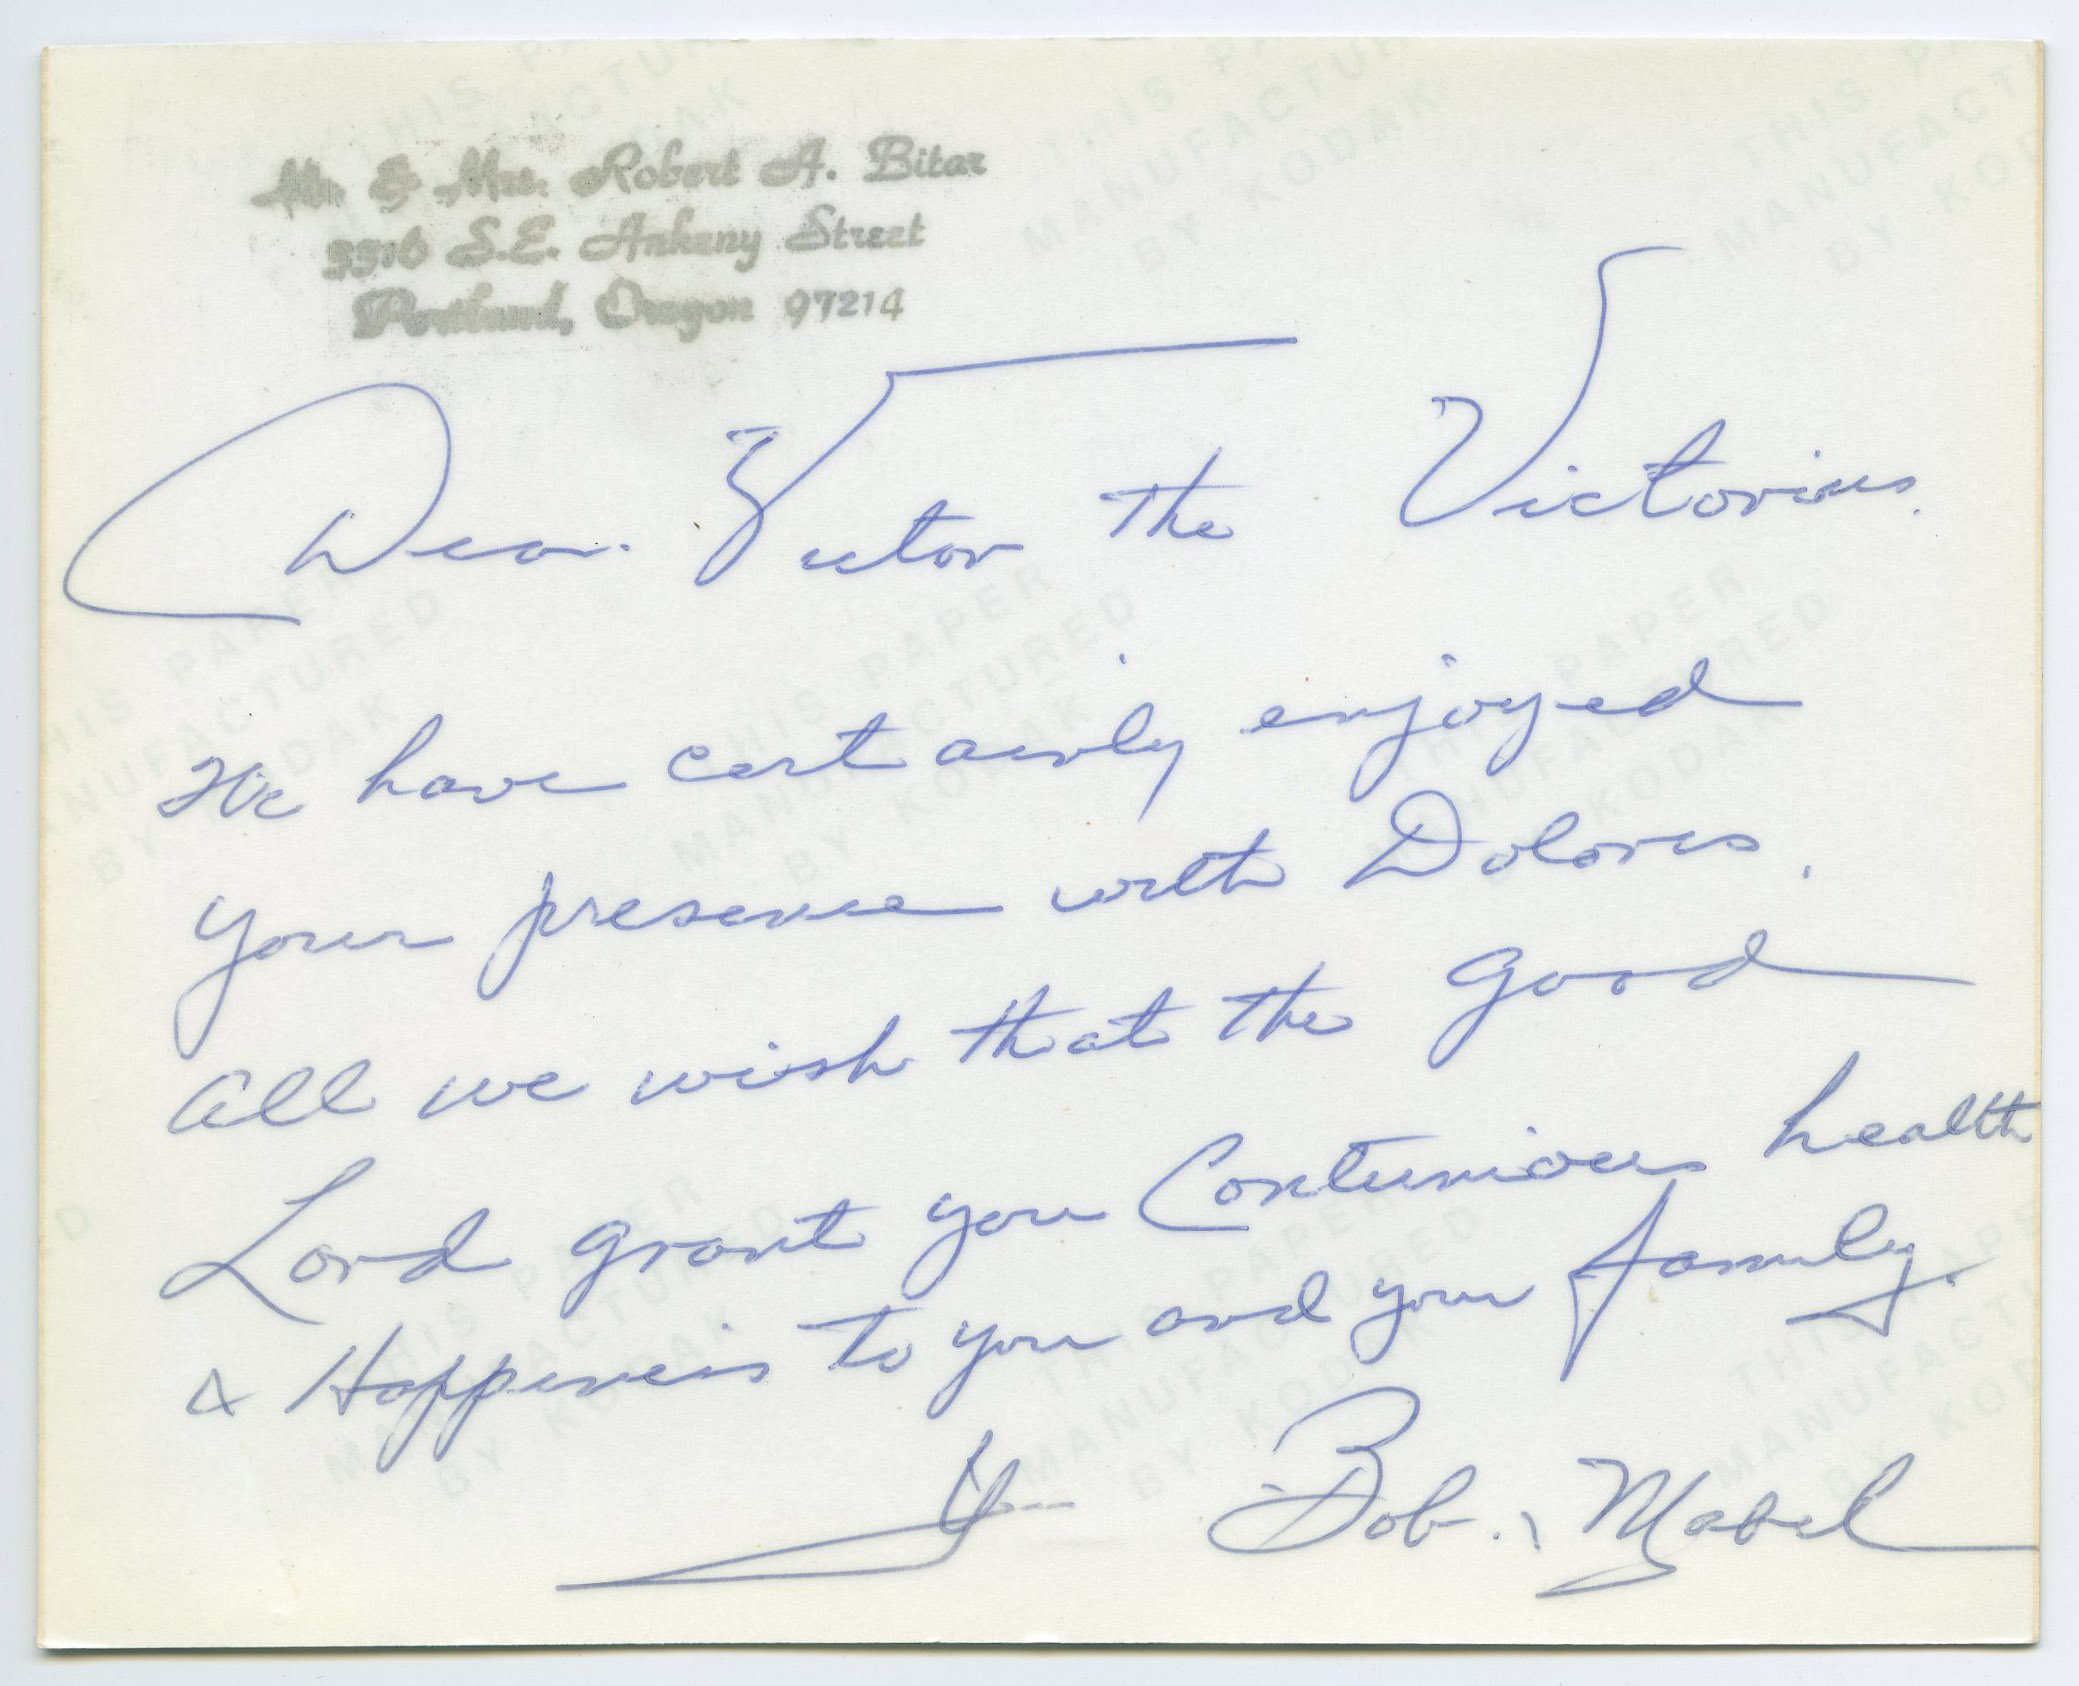 Mr. & Mrs. Robert A. Bitar
S.E. Ankeny Street
Portland, Oregon 97214
Dear. Victor the Victorius.
We have certainly enjoyed
your presence with Dolores.
all we wish that the good
Lord grant you Contunious health
& Happiness to you and your family.
Bob. Mabel
THIS PAPER
MANUFACTURED
BY KODAK